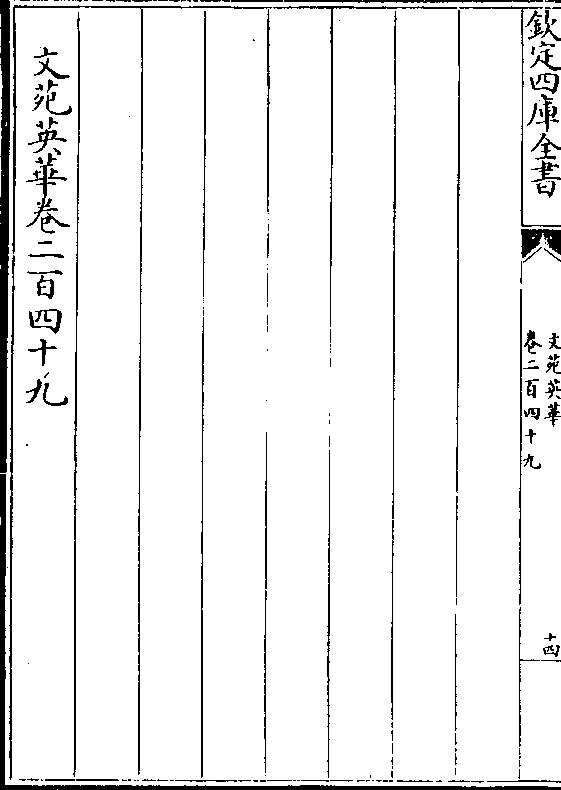 欽定四庫全書
文苑英華
卷二百四十九
十四
文苑英華卷二百四十九